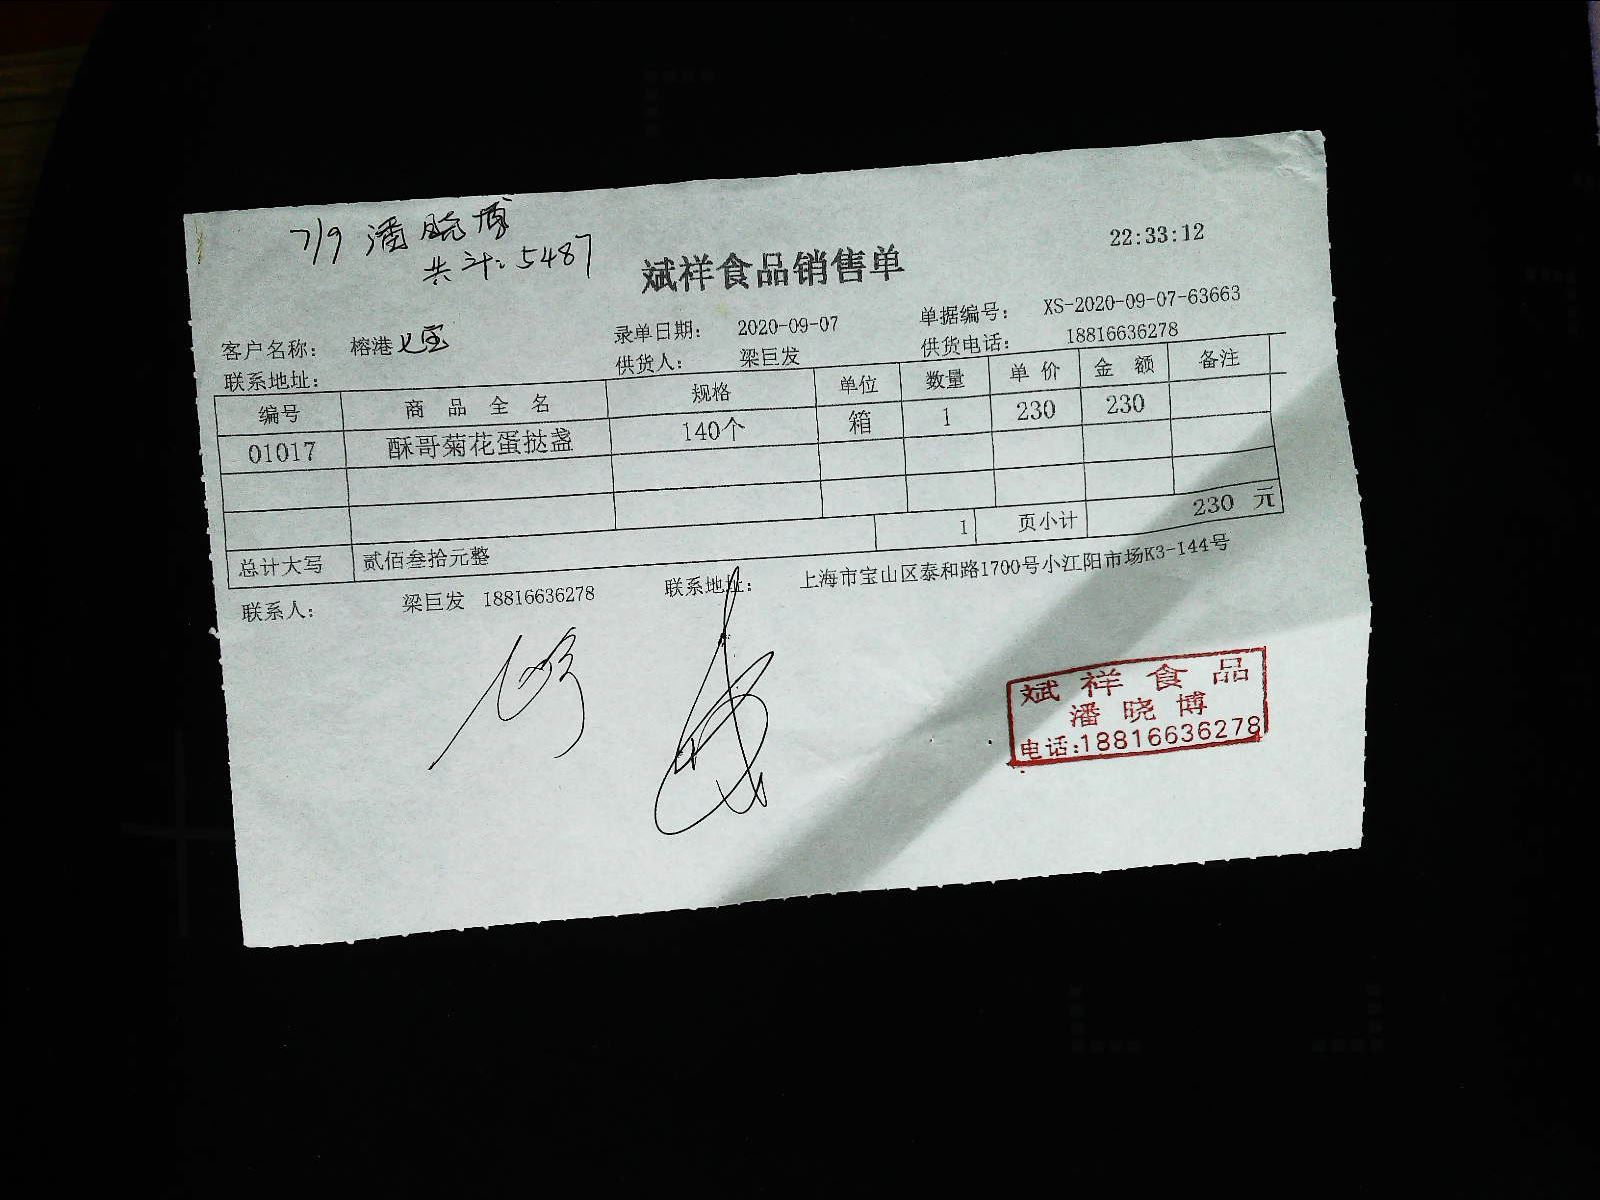 7/9 潘晓博
共计:5487
斌祥食品销售单
22:33:12
客户名称: 榕港七宝 录单日期: 2020-09-07 单据编号: XS-2020-09-07-63663
联系地址: 供货人: 梁巨发 供货电话: 18816636278
编号 商品全名 规格 单位 数量 单价 金额 备注
01017 酥哥菊花蛋挞盏 140个 箱 1 230 230
总计大写 贰佰叁拾元整 1 页小计 230 元
联系人: 梁巨发 18816636278 联系地址: 上海市宝山区泰和路1700号小江阳市场K3-144号
斌祥食品
潘晓博
电话:18816636278